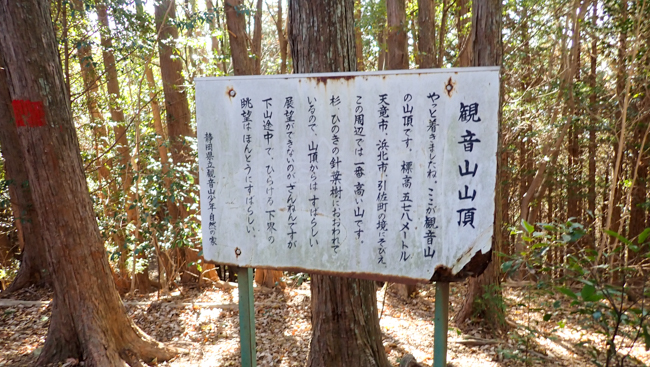 観音山山頂
やっと着きましたね。ここが観音山
の山頂です。標高五七八メートル
天竜市、浜北市、引佐町の境にそびえ、
この周辺では一番高い山です。
杉、ひのきの針葉樹におおわれて
いるので、山頂からは すばらしい
展望ができないのが ざんねんですが
下山途中で、ひらける 下界の
眺望は ほんとうに すばらしい。
静岡県立観音山少年自然の家